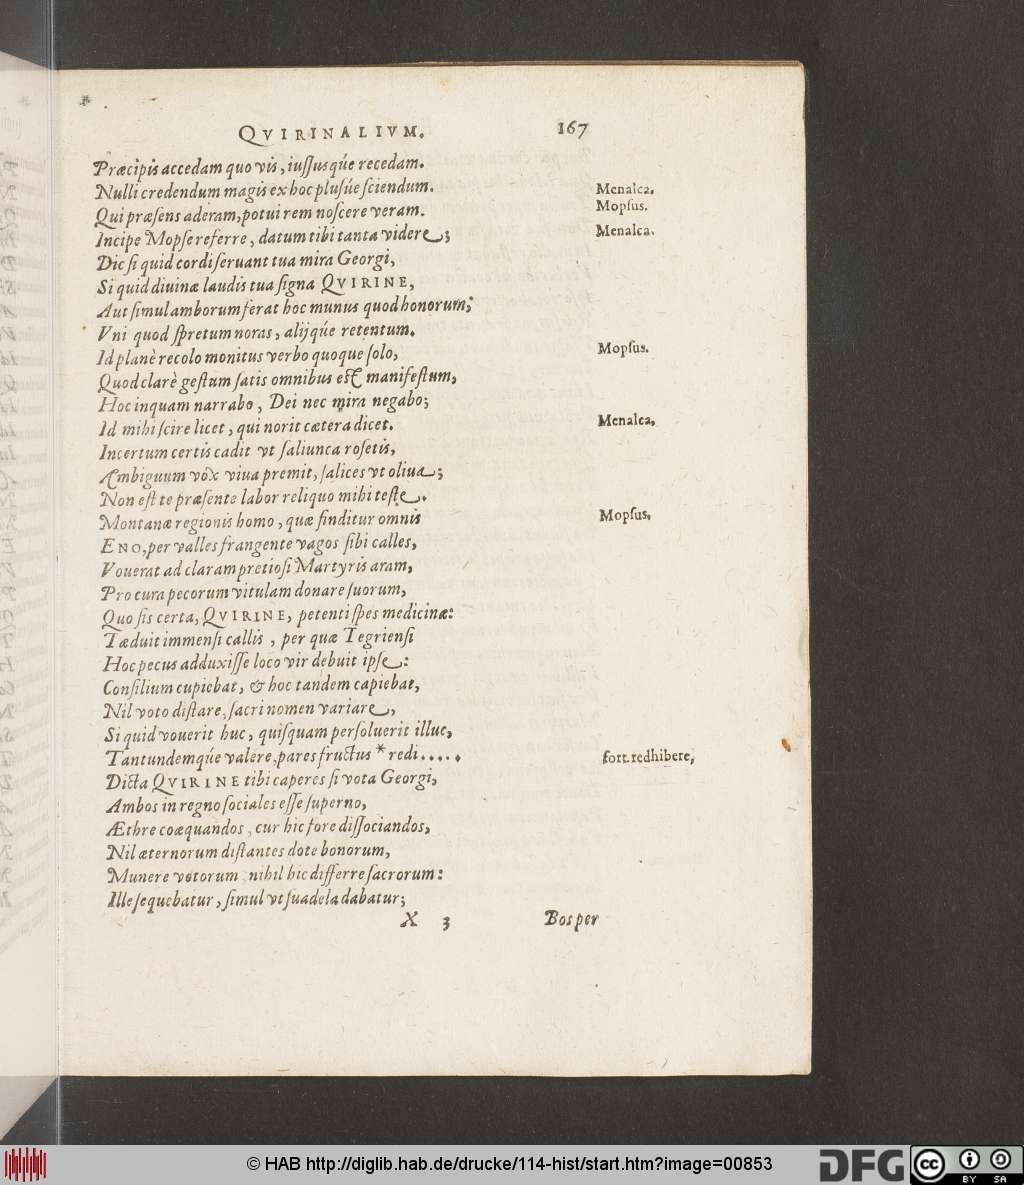 QVIRINALIVM. 167
Præcipis accedam quo vis, iussusq́ue recedam.
Nulli credendum magis ex hoc plusúe sciendum. Menalca.
Qui præsens aderam, potui rem noscere veram. Mopsus.
Incipe Mopse referre, datum tibi tanta videre; Menalca.
Dic si quid cordi seruant tua mira Georgi,
Si quid diuinæ laudis tua signa QVIRINE,
Aut simul amborum ferat hoc munus quod honorum;
Vni quod spretum noras, alijq́ue retentum.
Id planè recolo monitus verbo quoque solo, Mopsus.
Quod clarè gestum satis omnibus est manifestum,
Hoc inquam narrabo, Dei nec mira negabo;
Id mihi scire licet, qui norit cætera dicet. Menalca,
Incertum certis cadit vt saliunca rosetis,
Ambiguum vox viua premit, salices vt oliua;
Non est te præsente labor reliquo mihi teste.
Montanæ regionis homo, quæ finditur omnis Mopsus,
ENO, per valles frangente vagos sibi calles,
Vouerat ad claram pretiosi Martyris aram,
Pro cura pecorum vitulam donare suorum,
Quo sis certa, QVIRINE, petenti spes medicinæ:
Tæduit immensi callis, per quæ Tegriensi
Hoc pecus adduxisse loco vir debuit ipse:
Consilium cupiebat, & hoc tandem capiebat,
Nil voto distare, sacri nomen variare,
Si quid vouerit huc, quisquam persoluerit illuc,
Tantundemq́ue valere, pares fructus * redi..... fort. redhibere,
Dicta QVIRINE tibi caperes si vota Georgi,
Ambos in regno sociales esse superno,
Æthre coæquandos, cur hic fore dissociandos,
Nil æternorum distantes dote bonorum,
Munere votorum nihil hic differre sacrorum:
Ille sequebatur, simul vt suadela dabatur;
X 3 Bos per
© HAB http://diglib.hab.de/drucke/114-hist/start.htm?image=00853
DFG
cc BY SA